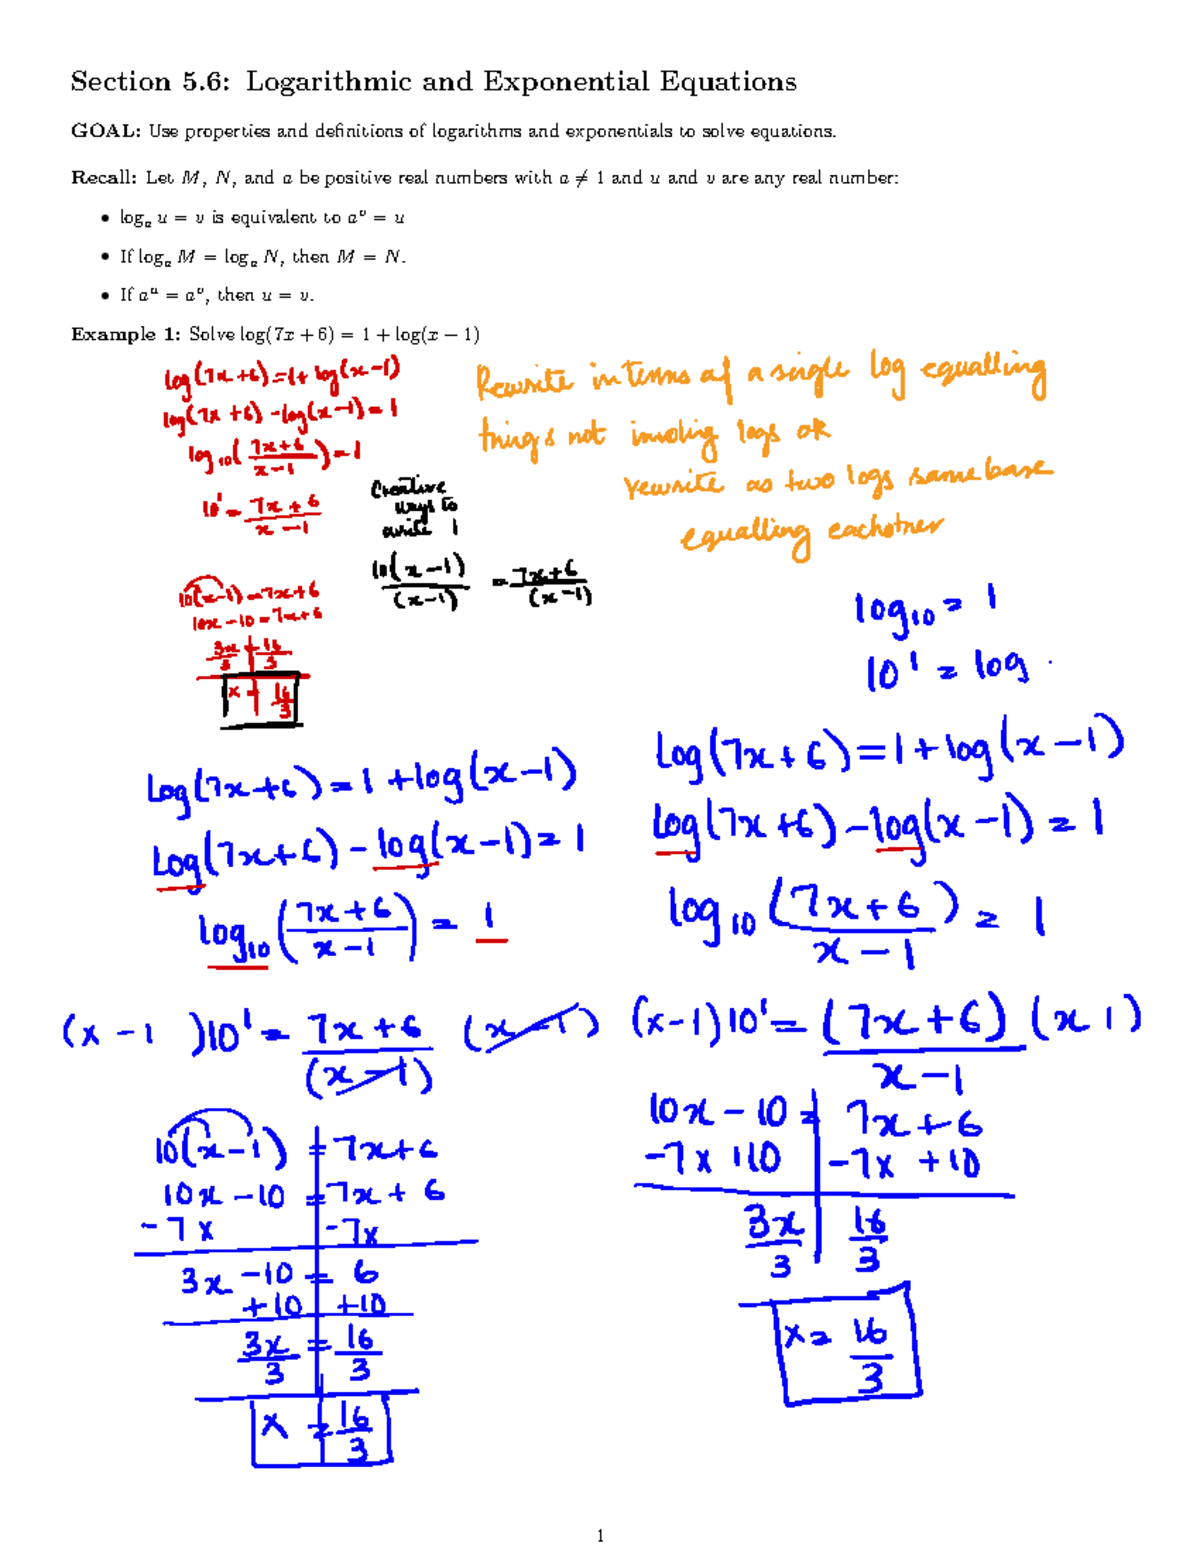 Section 5.6: Logarithmic and Exponential Equations
GOAL: Use properties and definitions of logarithms and exponentials to solve equations.
Recall: Let M, N, and a be positive real numbers with a ≠ 1 and u and v are any real number:
• logₐ u = v is equivalent to aᵛ = u
• If logₐ M = logₐ N, then M = N.
• If aᵘ = aᵛ, then u = v.
Example 1: Solve log(7x + 6) = 1 + log(x − 1)
log(7x+6)=1+log(x−1)
log(7x+6)−log(x−1)=1
log₁₀((7x+6)/(x−1))=1
10¹ = (7x+6)/(x−1)
10(x−1)=7x+6
10x−10=7x+6
3x/3 = 16/3
x = 16/3
Creative
ways to
write 1
10(x−1)/(x−1) = (7x+6)/(x−1)
Rewrite in terms of a single log equalling
things not involing logs OR
rewrite as two logs same base
equalling eachother
log₁₀ = 1
10¹ = log .
log(7x+6)=1+log(x−1)
log(7x+6)−log(x−1)=1
log₁₀((7x+6)/(x−1)) = 1
(x−1 )10¹ = (7x+6)/(x−1) (x−1)
10(x−1) = 7x+6
10x−10 = 7x+6
−7x −7x
3x−10 = 6
+10 +10
3x/3 = 16/3
x = 16/3
log(7x+6)=1+log(x−1)
log(7x+6)−log(x−1)=1
log₁₀((7x+6)/(x−1)) = 1
(x−1)10¹ = (7x+6)/(x−1) (x 1)
10x−10 = 7x+6
−7x +10 −7x +10
3x/3 16/3
x = 16/3
1